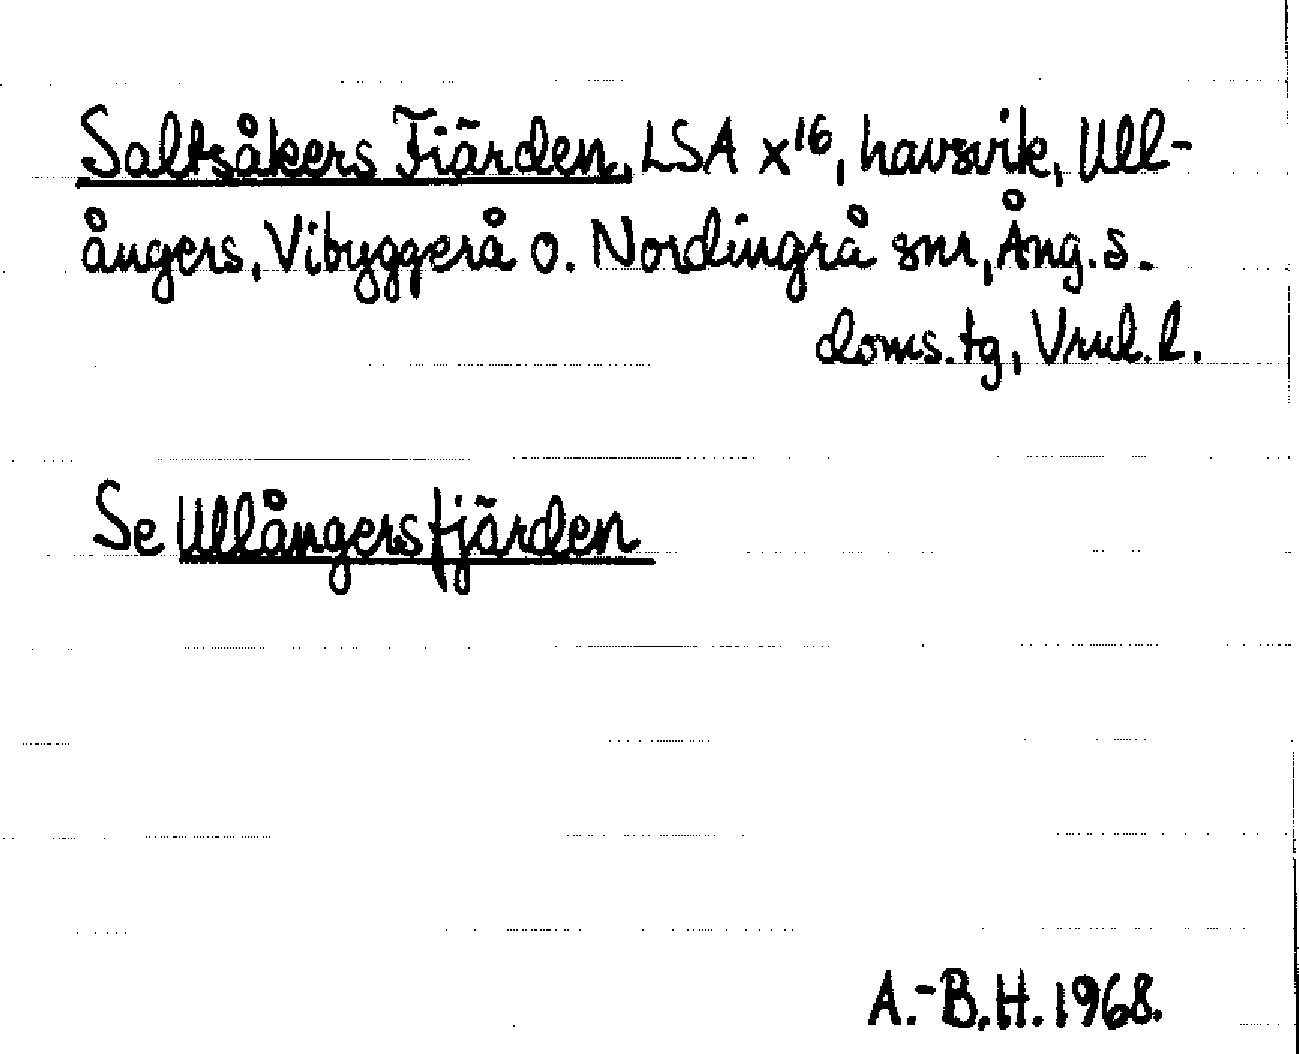 Saltsåkers Fiärden, LSA x16, havsvik, Ull-
ångers, Vibyggerå o. Nordingrå snr, Ång. s.
doms.tg, Vnl. l.
Se Ullångersfjärden
A.-B.H. 1968.